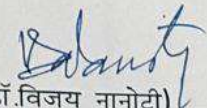 डॉ.विजय नानोटी)